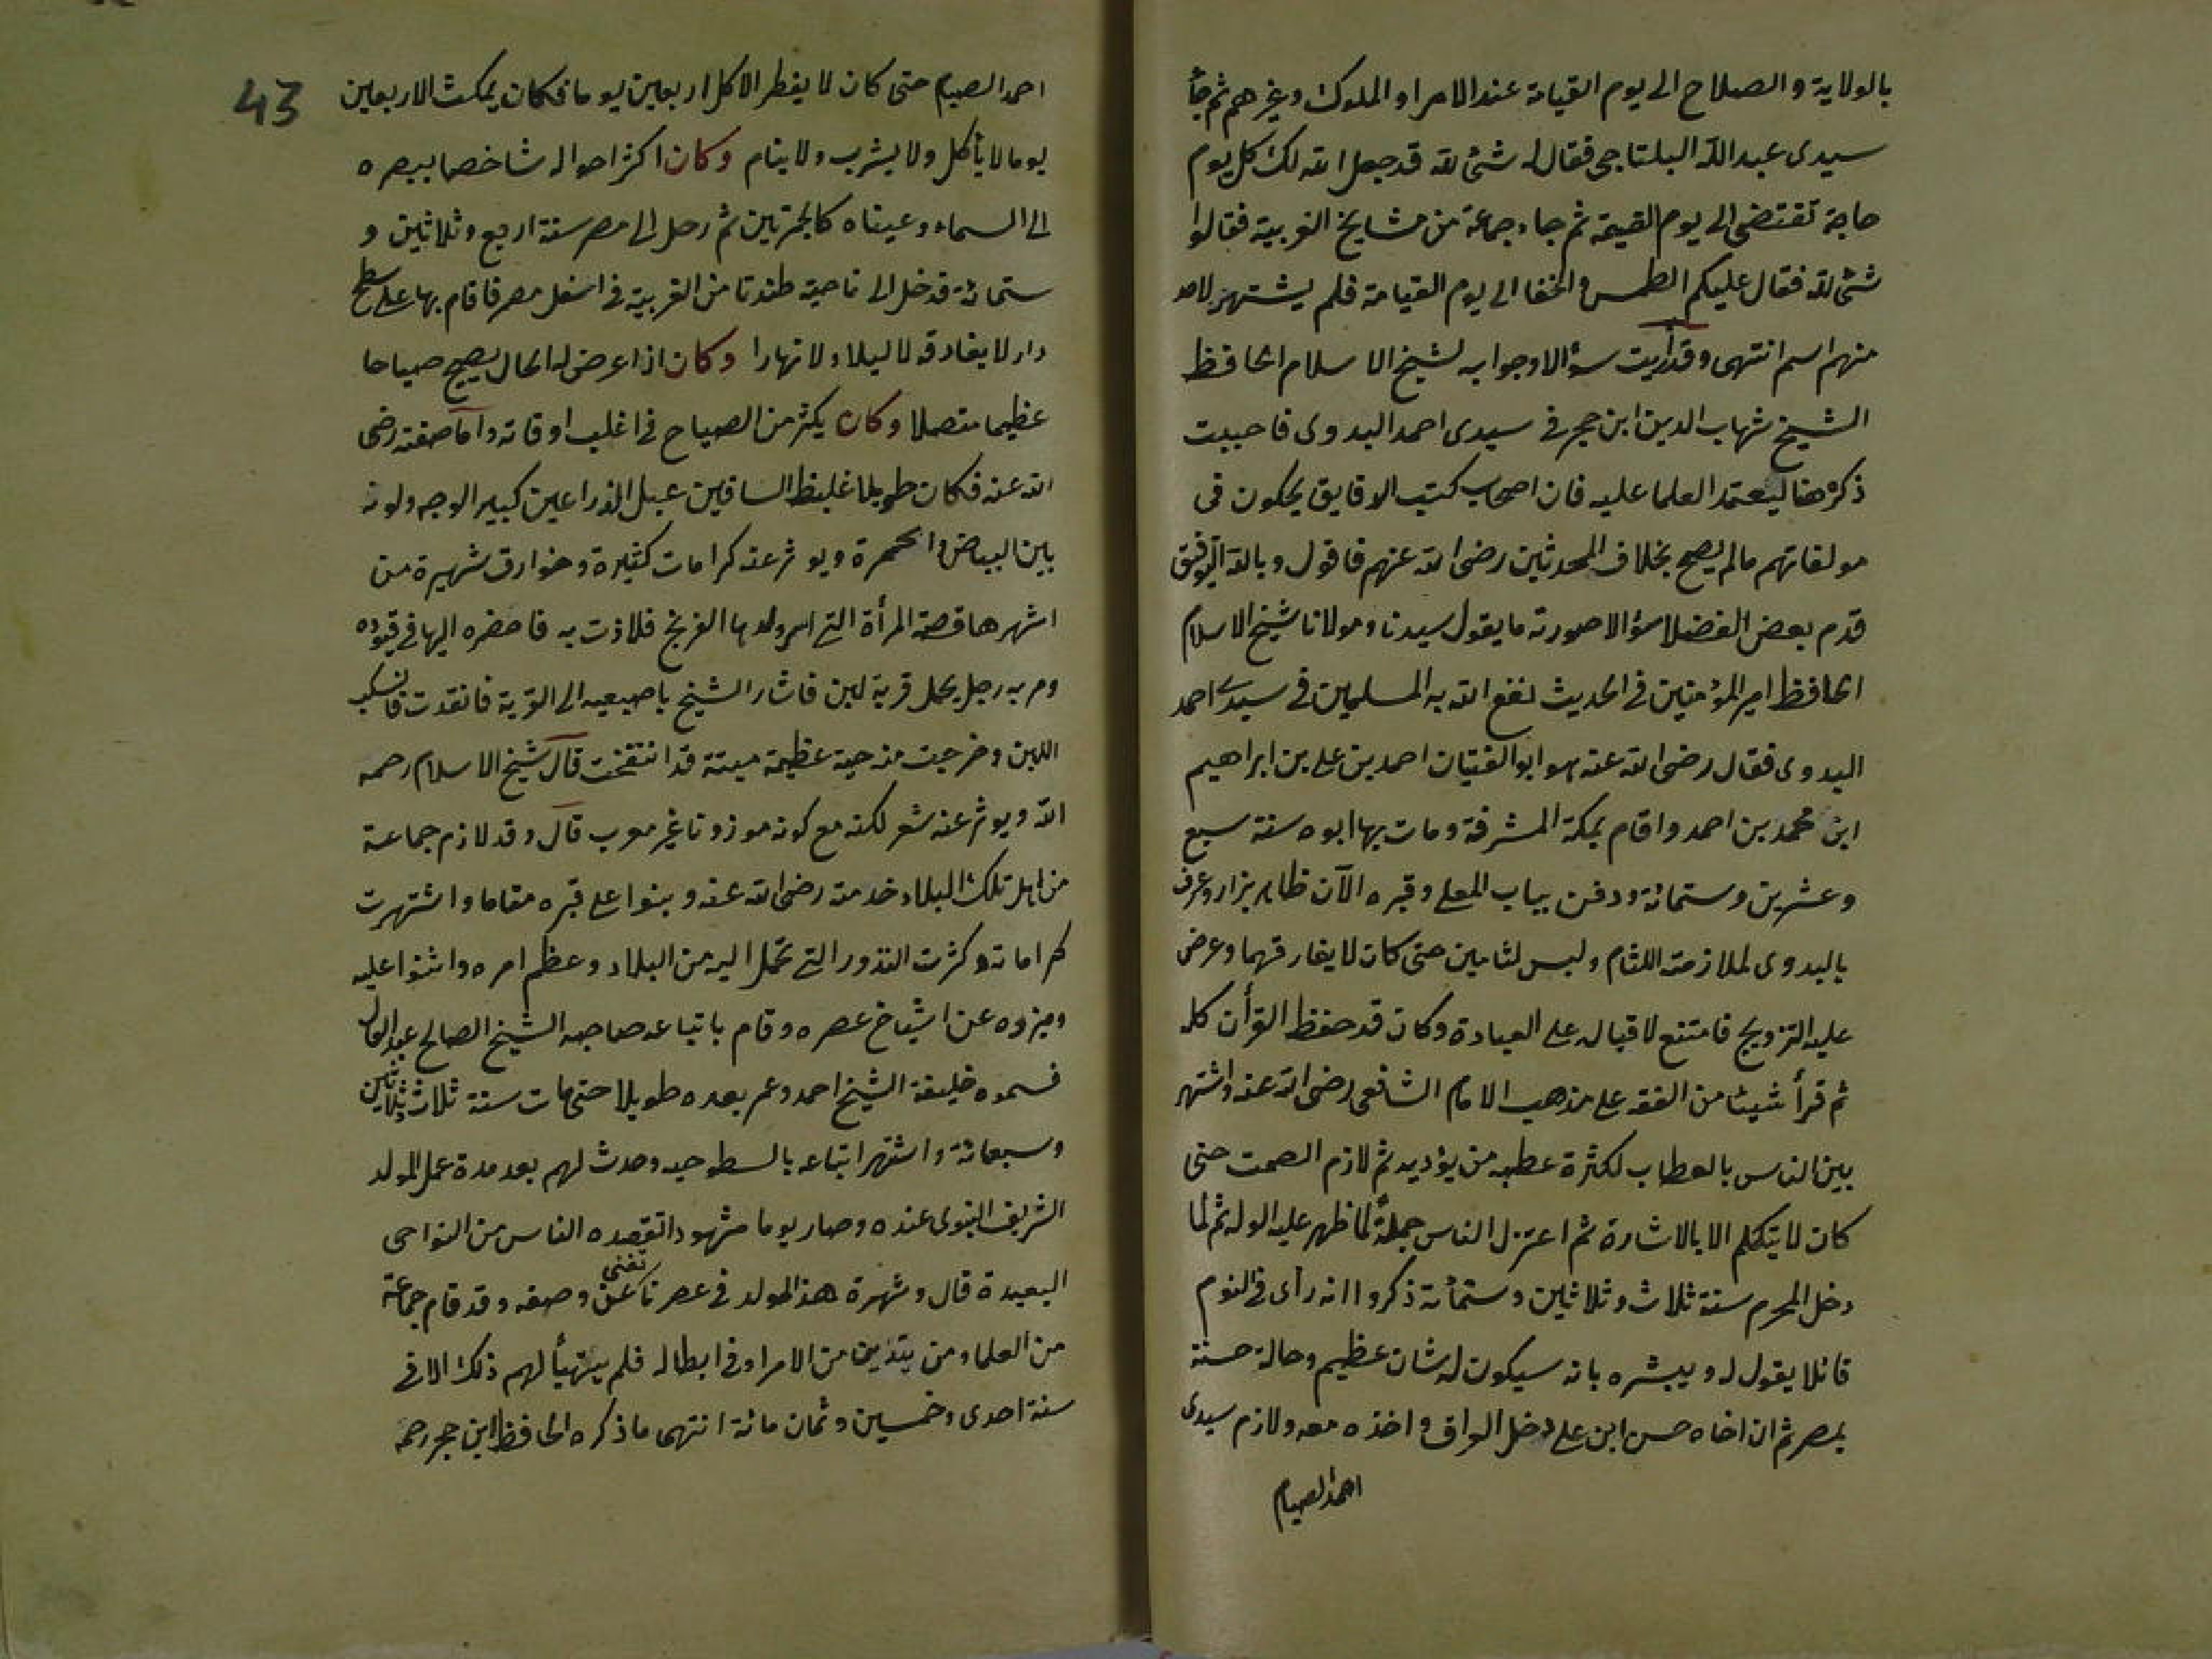 بالولاية والصلاح الى يوم القيامة عند الامرا والملوك وغيرهم ثم جأ
سيدى عبد الله البلتاجى فقال له شئ لله قد جعل الله لك كل يوم
حاجة تقتضى الى يوم القيمة ثم جاء جماعة من مشايخ الغربية فقالوا
شئ لله فقال عليكم الطمس والخفا الى يوم القيامة فلم يشتهر لاحد
منهم اسم انتهى وقد رأيت سؤالا وجوابه لشيخ الاسلام الحافظ
الشيخ شهاب الدين ابن حجر فى سيدى احمد البدوى فاحببت
ذكره هنا ليعتمد العلما عليه فان اصحاب كتب الرقايق يحكون فى
مولفاتهم ما لم يصح بخلاف المحدثين رضى الله عنهم فاقول وبالله التوفيق
قدم بعض الفضلا سؤالا صورته ما يقول سيدنا ومولانا شيخ الاسلام
الحافظ امير المؤمنين فى الحديث نفع الله به المسلمين فى سيدى احمد
البدوى فقال رضى الله عنه هو ابو الفتيان احمد بن على بن ابراهيم
ابن محمد بن احمد واقام بمكة المشرفة ومات بها ابوه سنة سبع
وعشرين وستمائة ودفن بباب المعلى وقبره الآن ظاهر يزار وعرف
بالبدوى لملازمته اللثام ولبس لثامين حتى كان لا يفارقهما وعرض
عليه التزويج فامتنع لاقباله على العبادة وكان قد حفظ القرأن كله
ثم قرأ شيئا من الفقه على مذهب الامام الشافعى رضى الله عنه واشتهر
بين الناس بالعطاب لكثرة عطبه من يؤديه ثم لازم الصمت حتى
كان لا يتكلم الا بالاشارة ثم اعتزل الناس جملة لما ظهر عليه الوله ثم لما
دخل المحرم سنة ثلاث وثلاثين وستمأئة ذكروا انه رأى فى النوم
قائلا يقول له ويبشره بانه سيكون له شان عظيم وحالة حسنة
بمصر ثم ان اخاه حسن ابن على دخل العراق واخذه معه ولازم سيدى
احمد الصيام
43
احمد الصيام حتى كان لا يفطر الا كل اربعين يوما فكان يمكث الاربعين
يوما لا يأكل ولا يشرب ولا ينام وكان اكثر احواله شاخصا ببصره
الى السماء وعيناه كالجمرتين ثم رحل الى مصر سنة اربع وثلاثين و
ستمائة فدخل الى ناحية طندتا من الغربية فى اسفل مصر فاقام بها على سطح
دار لا يفارقه لا ليلا ولا نهارا وكان اذا عرض له الحال يصيح صياحا
عظيما متصلا وكان يكثر من الصياح فى اغلب اوقاته واما صفته رضى
الله عنه فكان طويلا غليظ الساقين عبل الذراعين كبير الوجه ولونه
بين البياض والحمرة ويوثر عنه كرامات كثيرة وخوارق شهيرة من
اشهرها قصة المرأة التى اسر ولدها الفرنج فلاذت به فاحضره اليها فى قيوده
ومر به رجل يحمل قربة لبن فاشار الشيخ باصبعيه الى القربة فانقدت فانسكب
اللبن وخرجت منه حية عظيمة ميتة قد انتفخت قال شيخ الاسلام رحمه
الله ويوثر عنه شعر لكنه مع كونه موزونا غير معرب قال وقد لازم جماعة
من اهل تلك البلاد خدمته رضى الله عنه وبنوا على قبره مقاما واشتهرت
كراماته وكثرت النذور التى تحمل اليه من البلاد وعظم امره واثنوا عليه
وميزوه عن اشياخ عصره وقام باتباعه صاحبه الشيخ الصالح عبد العال
فسموه خليفة الشيخ احمد وعمر بعده طويلا حتى مات سنة ثلاث وثلاثين
وسبعمائة واشتهر اتباعه بالسطوحيه وحدث لهم بعد مدة عمل المولد
الشريف النبوى عنده وصار يوما مشهودا تقصده الناس من النواحى
البعيدة قال وشهرة هذا المولد فى عصرنا تغنى عن وصفه وقد قام جماعة
من العلما ومن يتدين من الامراء فى ابطاله فلم يتهيأ لهم ذلك الا فى
سنة احدى وخمسين وثمان مائة انتهى ما ذكره الحافظ ابن حجر رحمه